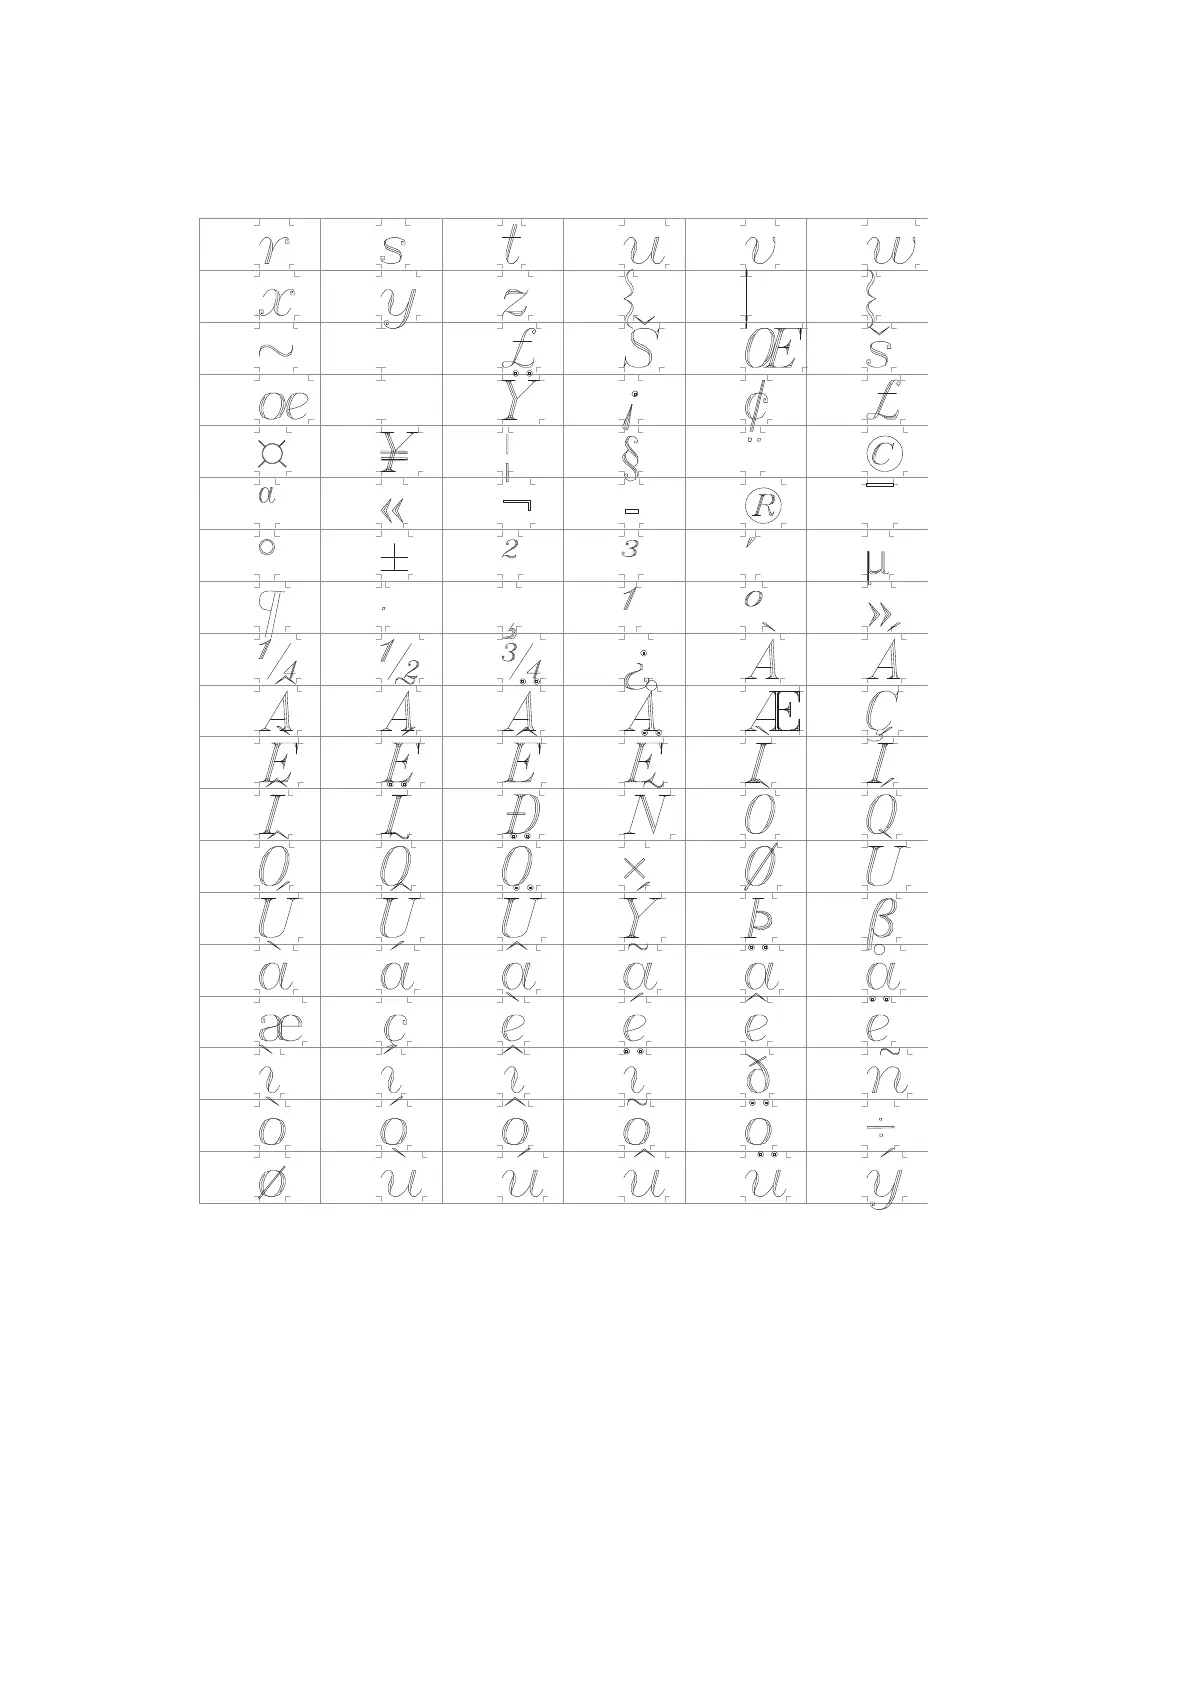 r s t u v w
x y z { | }
~ £ Š Œ š
œ Ÿ ¡ ¢ £
¤ ¥ ¦ § ¨ ©
ª « ¬ - ® ¯
° ± ² ³ ´ µ
¶ · ¸ ¹ º »
¼ ½ ¾ ¿ À Á
Â Ã Ä Å Æ Ç
È É Ê Ë Ì Í
Î Ï Ð Ñ Ò Ó
Ô Õ Ö × Ø Ù
Ú Û Ü Ý Þ ß
à á â ã ä å
æ ç è é ê ë
ì í î ï ð ñ
ò ó ô õ ö ÷
ø ù ú û ü ý